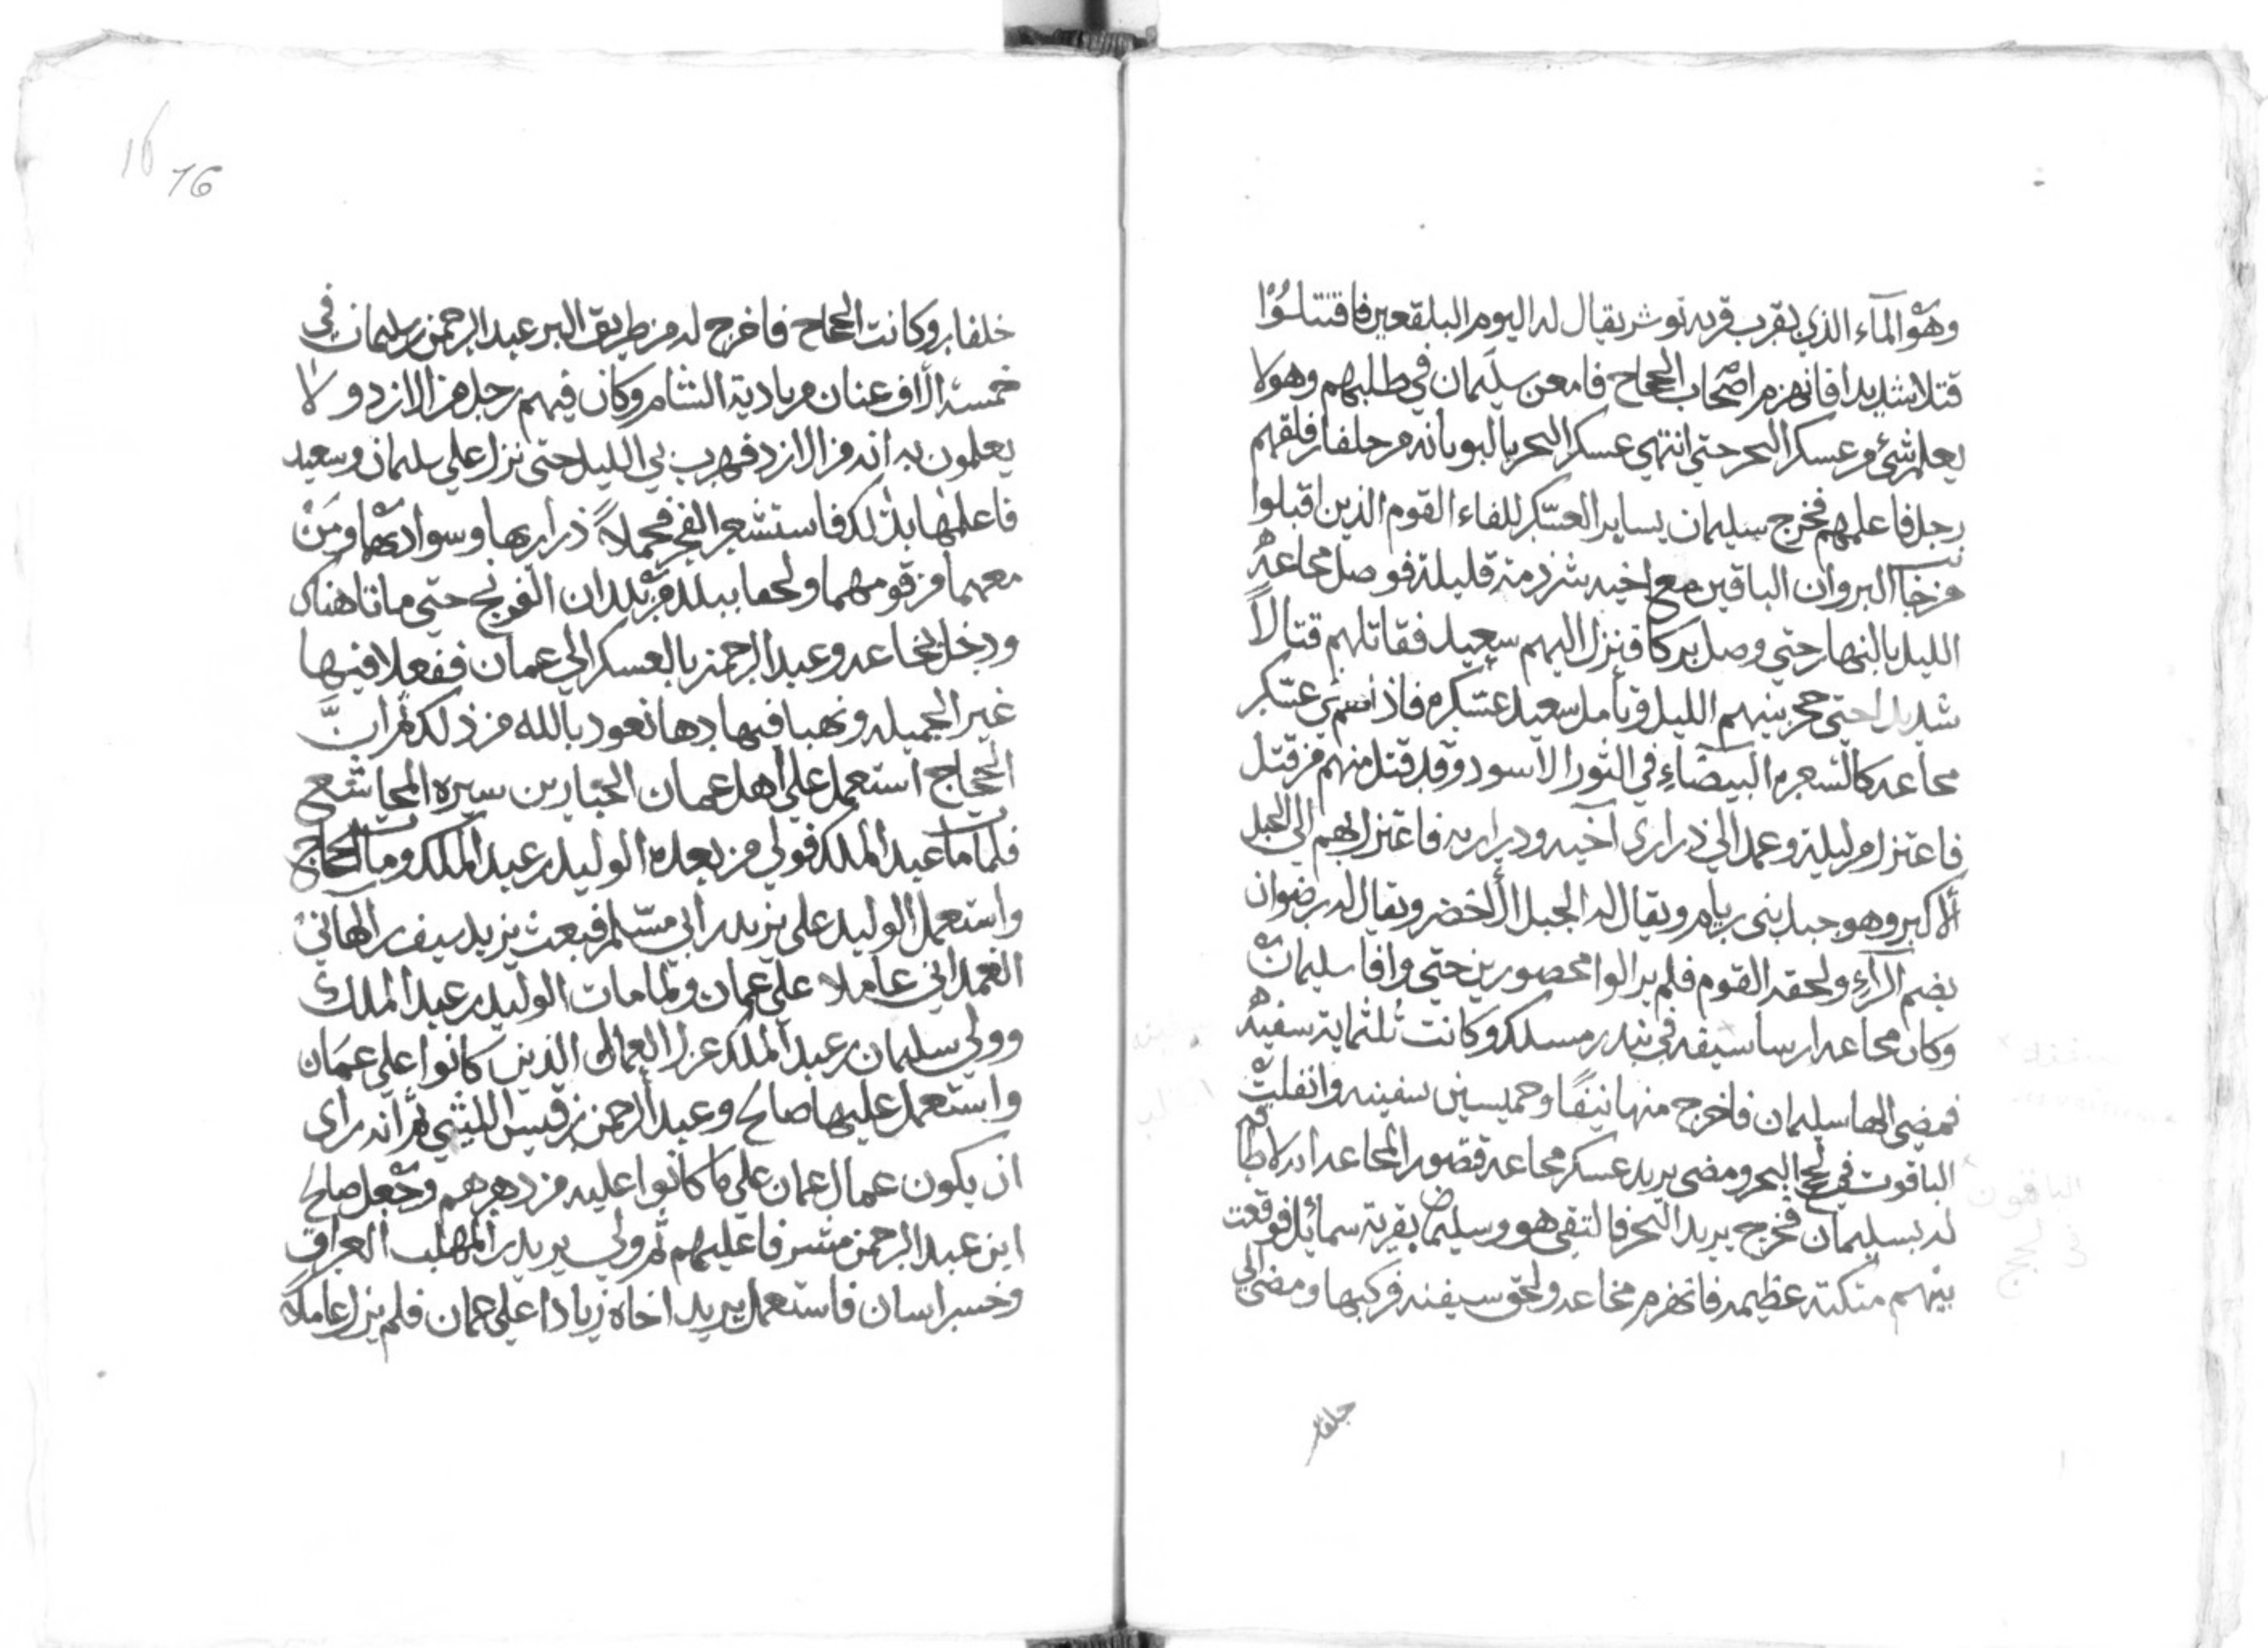 وهو المآء الذي بقرب قريه بوشر يقال له اليوم البلقعين فاقتتلوا
قتلا شديدا فانهزم اصحاب الحجاج فامعن سليمان في طلبهم وهو لا
يعلم بشئ من عسكر البحر حتي انتهي عسكر البحر بالبوبانه من جلفار فلقهم
رجل فاعلمهم فخرج سليمان يساير العسكر للقاء القوم الذين اقبلوا
من جانب البر وان الباقين مع اخيه شرذمة قليلة فوصل مجاعه
الليل بالنهار حتي وصل بركا فنزل اليهم سعيد فقاتلهم قتالا
شديدا حتي حجز بينهم الليل وتأمل سعيد عسكره فاذا هم في عسكر
مجاعه كالشعره البيضاء في الثور الاسود وقد قتل منهم من قتل
فاعتزل من ليلة وعمد الي ذراري اخيه ودراريه فاعتزل بهم الي الجبل
الاكبر وهو جبل بني ريام ويقال له الجبل الاخضر ويقال له رضوان
بضم الرآء ولحقه القوم فلم يزالوا محصورين حتي وافا سليمان
وكان مجاعه ارسا سيفنه في بندر مسكد وكانت ثلثماية سفينه
فمضي الها سليمان فاخرج منها نيفا وخمسين سفينه وانفلت
الباقون في لجج البحر ومضي يريد عسكر مجاعه فتصور لمجاعه انه لا طاقه
له بسليمان فخرج يريد البحر فالتقي هو وسليمان بقرية سمائل فوقعت
بينهم متكنه عظيمه فانهزم مجاعه ولحق سيفنه فركبها ومضي الي
جلفار
16 16
جلفار وكاتب الحجاج فاخرج له من طريق البر عبد الرحمن بن سليمان في
خمسة الاف عنان من بادية الشام وكان فيهم رجل من الازد ولا
يعلمون به انه من الازد فهرب في الليل حتي نزل علي سليمان وسعيد
فاعلمها بذلك فاستشعر العجز فحملا ذراريها وسوادهما ومن
معهما من قومهما ولحقا ببلد من بلدان الزنج حتي ماتا هناك
ودخل مجاعه وعبد الرحمن بالعسكر الي عمان ففعلا فيها
غير الجميله ونهبا فيها دها نعود بالله من ذلك ثم ان
الحجاج استعمل علي اهل عمان الخيار بن سيره المجاشع
فلما مات عبد الملك فولي من بعده الوليد بن عبد الملك ومات الحجاج
واستعمل الوليد علي يزيد بن ابي مسلم فبعث يزيد سيف بن الهاني
الهمداني عاملا علي عمان ولما مات الوليد بن عبد الملك
وولي سليمان بن عبد الملك عزل العمال الذين كانوا علي عمان
واستعمل عليها صالح وعبد الرحمن بن قيس الليثي ثم انه راى
ان يكون عمال عمان علي ما كانوا عليه من دهرهم وجعل صالح
ابن عبد الرحمن مشرفا عليهم ثم ولي يزيد بن المهلب العراق
وخسراسان فاستعمل يزيد اخاه زيادا علي عمان فلم يزل عاملا